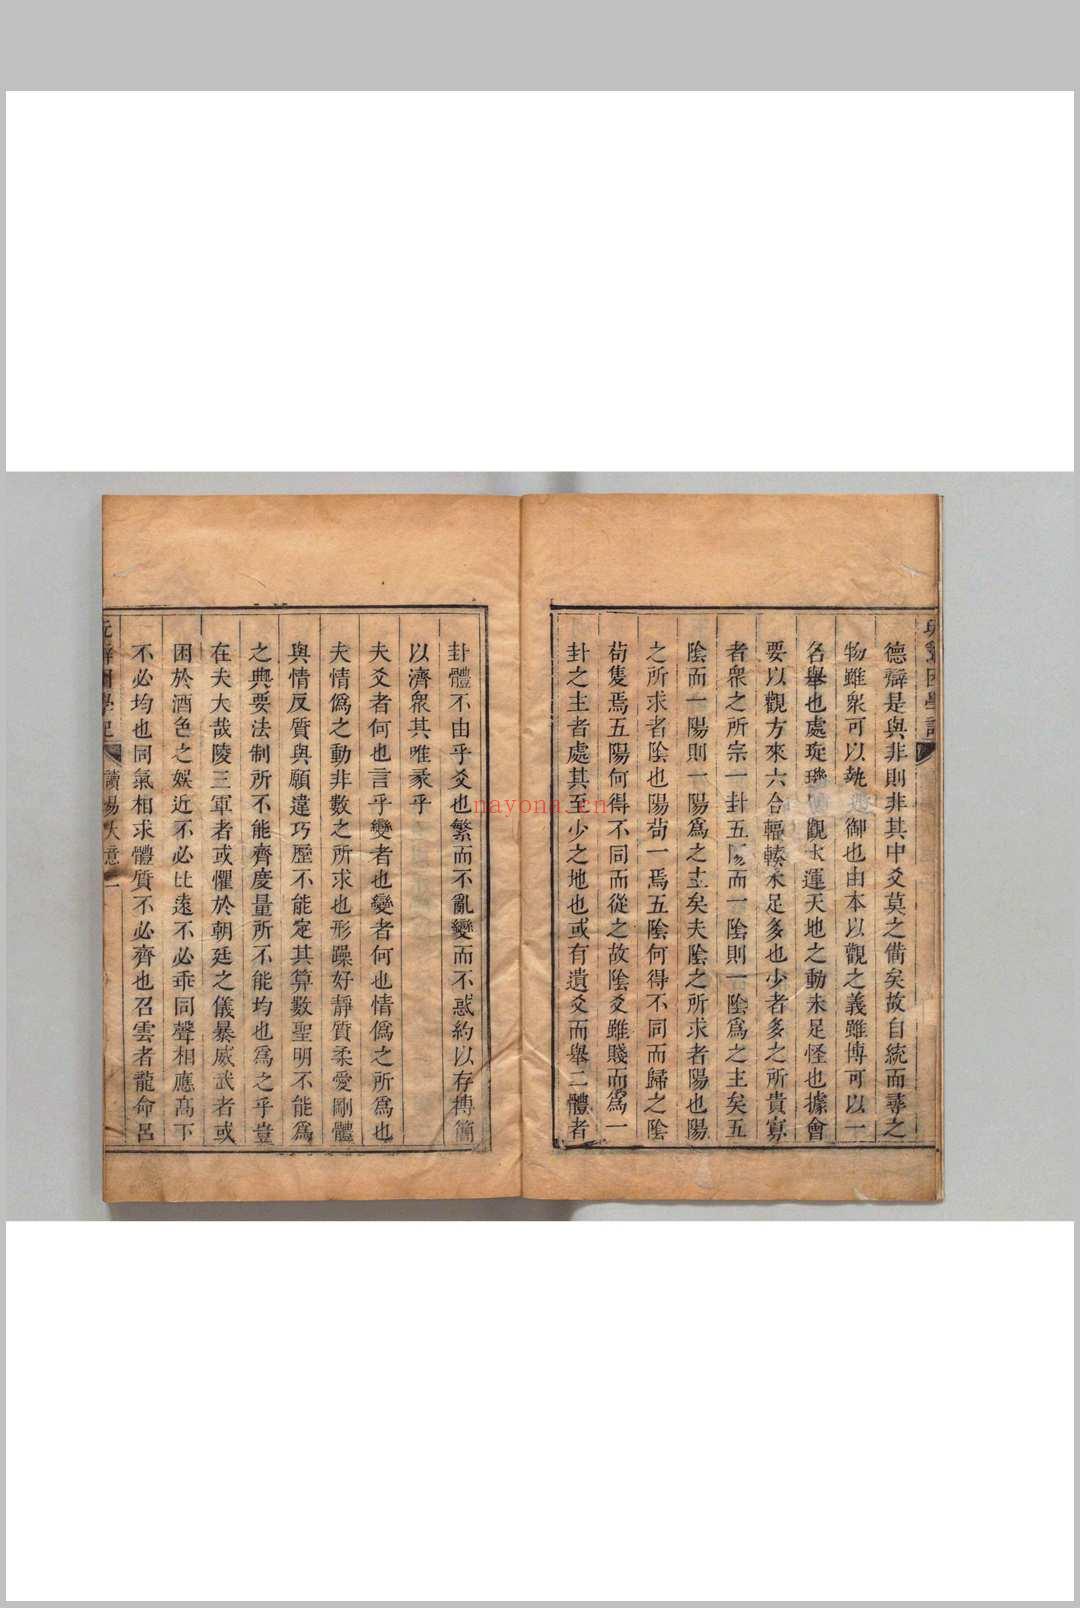 德辯是與非則非其中爻莫之備矣故自統而尋之
物雖衆可以執 御也由本以觀之義雖博可以一
名舉也處琁璣 觀大運天地之動未足怪也據會
要以觀方來六合輻輳未足多也少者多之所貴寡
者衆之所宗一卦五陽而一陰則一陰爲之主矣五
陰而一陽則一陽爲之主矣夫陰之所求者陽也陽
之所求者陰也陽苟一焉五陰何得不同而歸之陰
苟隻焉五陽何得不同而從之故陰爻雖賤而爲一
卦之主者處其至少之地也或有遺爻而舉二體者
卦體不由乎爻也繁而不亂變而不惑約以存博簡
以濟衆其唯彖乎
夫爻者何也言乎變者也變者何也情僞之所爲也
夫情僞之動非數之所求也形躁好靜質柔愛剛體
與情反質與願違巧歷不能定其算數聖明不能爲
之典要法制所不能齊度量所不能均也爲之乎豈
在夫大哉陵三軍者或懼於朝廷之儀暴威武者或
困於酒色之娛近不必比遠不必乖同聲相應高下
不必均也同氣相求體質不必齊也召雲者龍命呂
讀易大意 二
nayona.cn